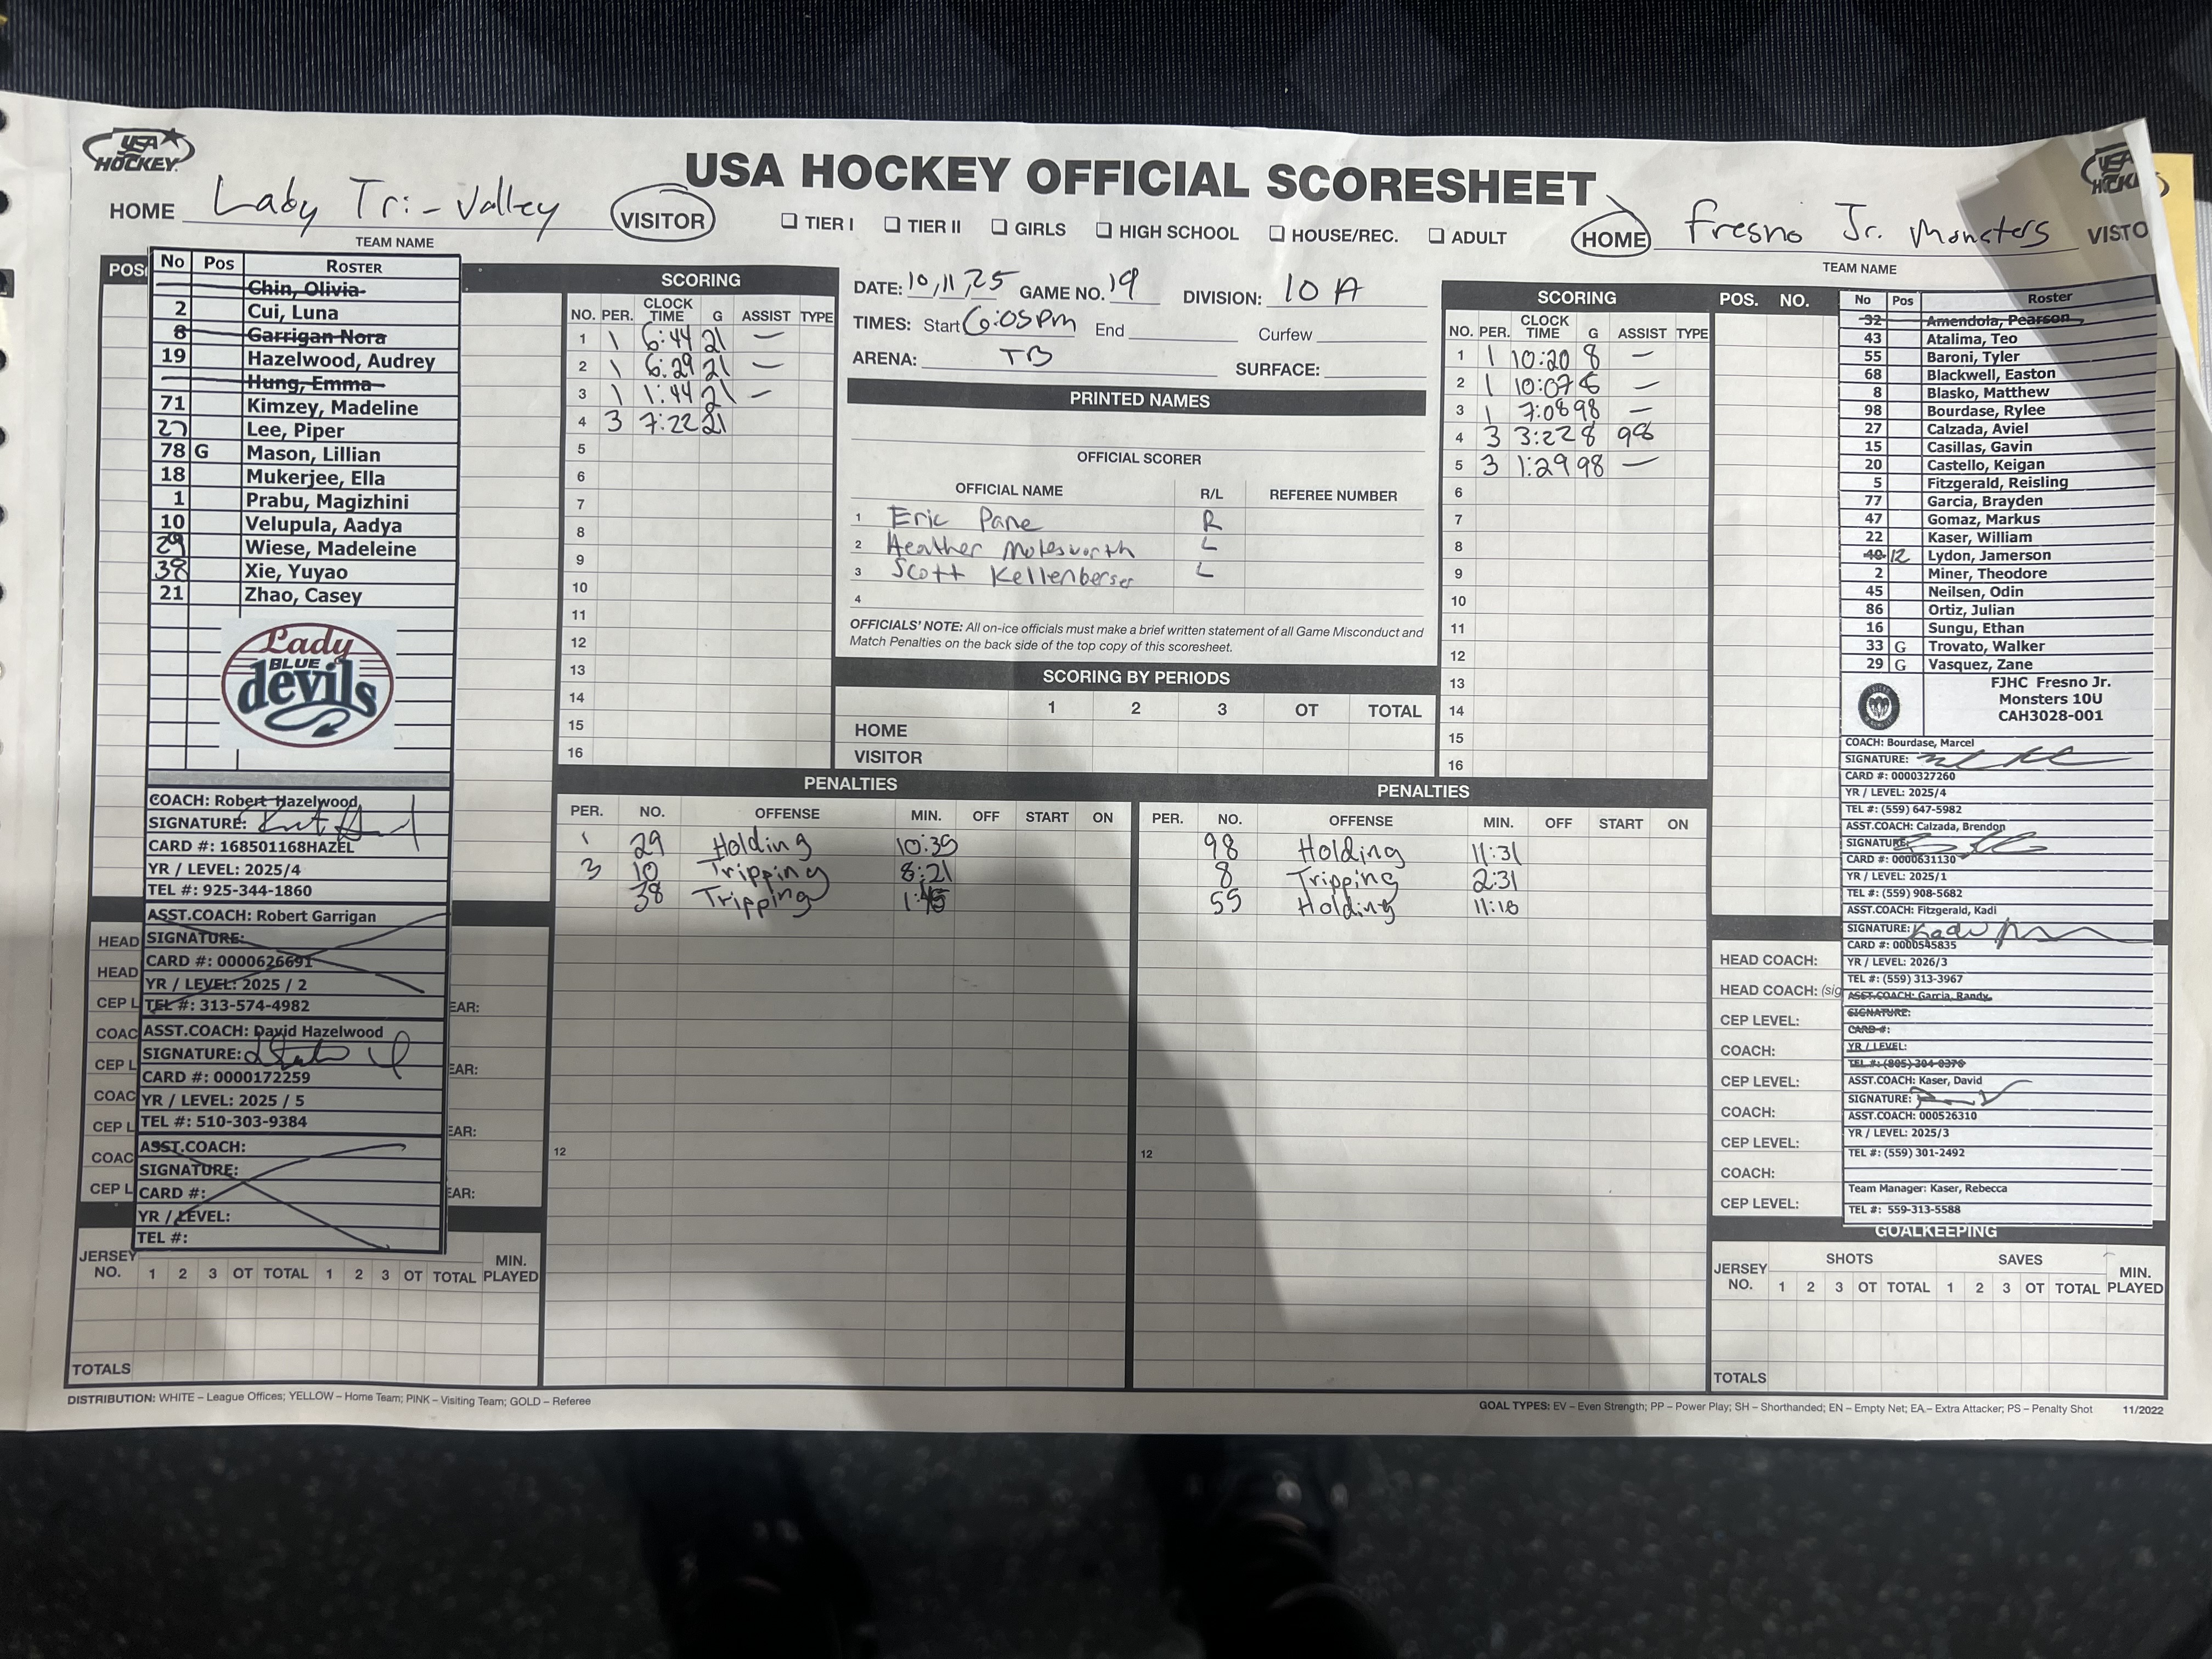 USA HOCKEY
USA HOCKEY OFFICIAL SCORESHEET
HOME Lady Tri-Valley VISITOR
TEAM NAME
❑ TIER I ❑ TIER II ❑ GIRLS ❑ HIGH SCHOOL ❑ HOUSE/REC. ❑ ADULT
HOME Fresno Jr. Monsters VISTO
TEAM NAME
No Pos ROSTER
Chin, Olivia
2 Cui, Luna
8 Garrigan Nora
19 Hazelwood, Audrey
Hung, Emma
71 Kimzey, Madeline
27 Lee, Piper
78 G Mason, Lillian
18 Mukerjee, Ella
1 Prabu, Magizhini
10 Velupula, Aadya
29 Wiese, Madeleine
38 Xie, Yuyao
21 Zhao, Casey
Lady
BLUE
devils
COACH: Robert Hazelwood
SIGNATURE:
CARD #: 168501168HAZEL
YR / LEVEL: 2025/4
TEL #: 925-344-1860
ASST.COACH: Robert Garrigan
SIGNATURE:
CARD #: 0000626691
YR / LEVEL: 2025 / 2
TEL #: 313-574-4982
ASST.COACH: David Hazelwood
SIGNATURE:
CARD #: 0000172259
YR / LEVEL: 2025 / 5
TEL #: 510-303-9384
ASST.COACH:
SIGNATURE:
CARD #:
YR / LEVEL:
TEL #:
POS
HEAD
HEAD
CEP L
COAC
CEP L
COAC
CEP L
COAC
CEP L
EAR:
EAR:
EAR:
EAR:
JERSEY NO. 1 2 3 OT TOTAL 1 2 3 OT TOTAL MIN. PLAYED
TOTALS
SCORING
NO. PER. CLOCK TIME G ASSIST TYPE
1 1 6:44 21 —
2 1 6:29 21 —
3 1 1:44 21 —
4 3 7:22 21
5
6
7
8
9
10
11
12
13
14
15
16
DATE: 10,11,25 GAME NO. 19 DIVISION: 10 A
TIMES: Start 6:05pm End Curfew
ARENA: TB SURFACE:
PRINTED NAMES
OFFICIAL SCORER
OFFICIAL NAME R/L REFEREE NUMBER
1 Eric Pane R
2 Heather Molesworth L
3 Scott Kellenberger L
4
OFFICIALS' NOTE: All on-ice officials must make a brief written statement of all Game Misconduct and
Match Penalties on the back side of the top copy of this scoresheet.
SCORING BY PERIODS
1 2 3 OT TOTAL
HOME
VISITOR
SCORING
NO. PER. CLOCK TIME G ASSIST TYPE
1 1 10:20 8 —
2 1 10:07 —
3 1 7:08 98 —
4 3 3:22 8 98
5 3 1:29 98 —
6
7
8
9
10
11
12
13
14
15
16
PENALTIES
PER. NO. OFFENSE MIN. OFF START ON
1 29 Holding 10:39
3 10 Tripping 8:21
38 Tripping
12
PENALTIES
PER. NO. OFFENSE MIN. OFF START ON
98 Holding 11:31
8 Tripping 2:31
55 Holding 11:18
12
POS. NO.
No Pos Roster
32 Amendola, Pearson
43 Atalima, Teo
55 Baroni, Tyler
68 Blackwell, Easton
8 Blasko, Matthew
98 Bourdase, Rylee
27 Calzada, Aviel
15 Casillas, Gavin
20 Castello, Keigan
5 Fitzgerald, Reisling
77 Garcia, Brayden
47 Gomaz, Markus
22 Kaser, William
40 12 Lydon, Jamerson
2 Miner, Theodore
45 Neilsen, Odin
86 Ortiz, Julian
16 Sungu, Ethan
33 G Trovato, Walker
29 G Vasquez, Zane
FJHC Fresno Jr.
Monsters 10U
CAH3028-001
COACH: Bourdase, Marcel
SIGNATURE:
CARD #: 0000327260
YR / LEVEL: 2025/4
TEL #: (559) 647-5982
ASST.COACH: Calzada, Brendon
SIGNATURE:
CARD #: 0000631130
YR / LEVEL: 2025/1
TEL #: (559) 908-5682
ASST.COACH: Fitzgerald, Kadi
SIGNATURE:
CARD #: 0000545835
YR / LEVEL: 2026/3
TEL #: (559) 313-3967
ASST.COACH: Garcia, Randy
SIGNATURE:
CARD #:
YR / LEVEL:
TEL #: (805) 304-0376
ASST.COACH: Kaser, David
SIGNATURE:
ASST.COACH: 000526310
YR / LEVEL: 2025/3
TEL #: (559) 301-2492
Team Manager: Kaser, Rebecca
TEL #: 559-313-5588
HEAD COACH:
HEAD COACH: (sig
CEP LEVEL:
COACH:
CEP LEVEL:
COACH:
CEP LEVEL:
COACH:
CEP LEVEL:
GOALKEEPING
SHOTS SAVES
JERSEY NO. 1 2 3 OT TOTAL 1 2 3 OT TOTAL MIN. PLAYED
TOTALS
DISTRIBUTION: WHITE – League Offices; YELLOW – Home Team; PINK – Visiting Team; GOLD – Referee
GOAL TYPES: EV – Even Strength; PP – Power Play; SH – Shorthanded; EN – Empty Net; EA – Extra Attacker; PS – Penalty Shot 11/2022